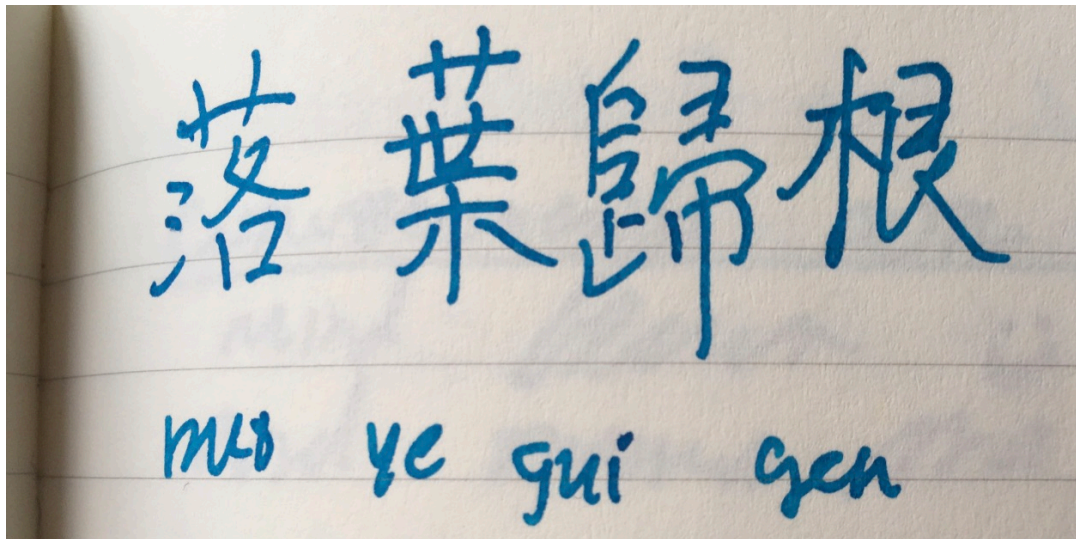 落葉歸根
ye gui gen